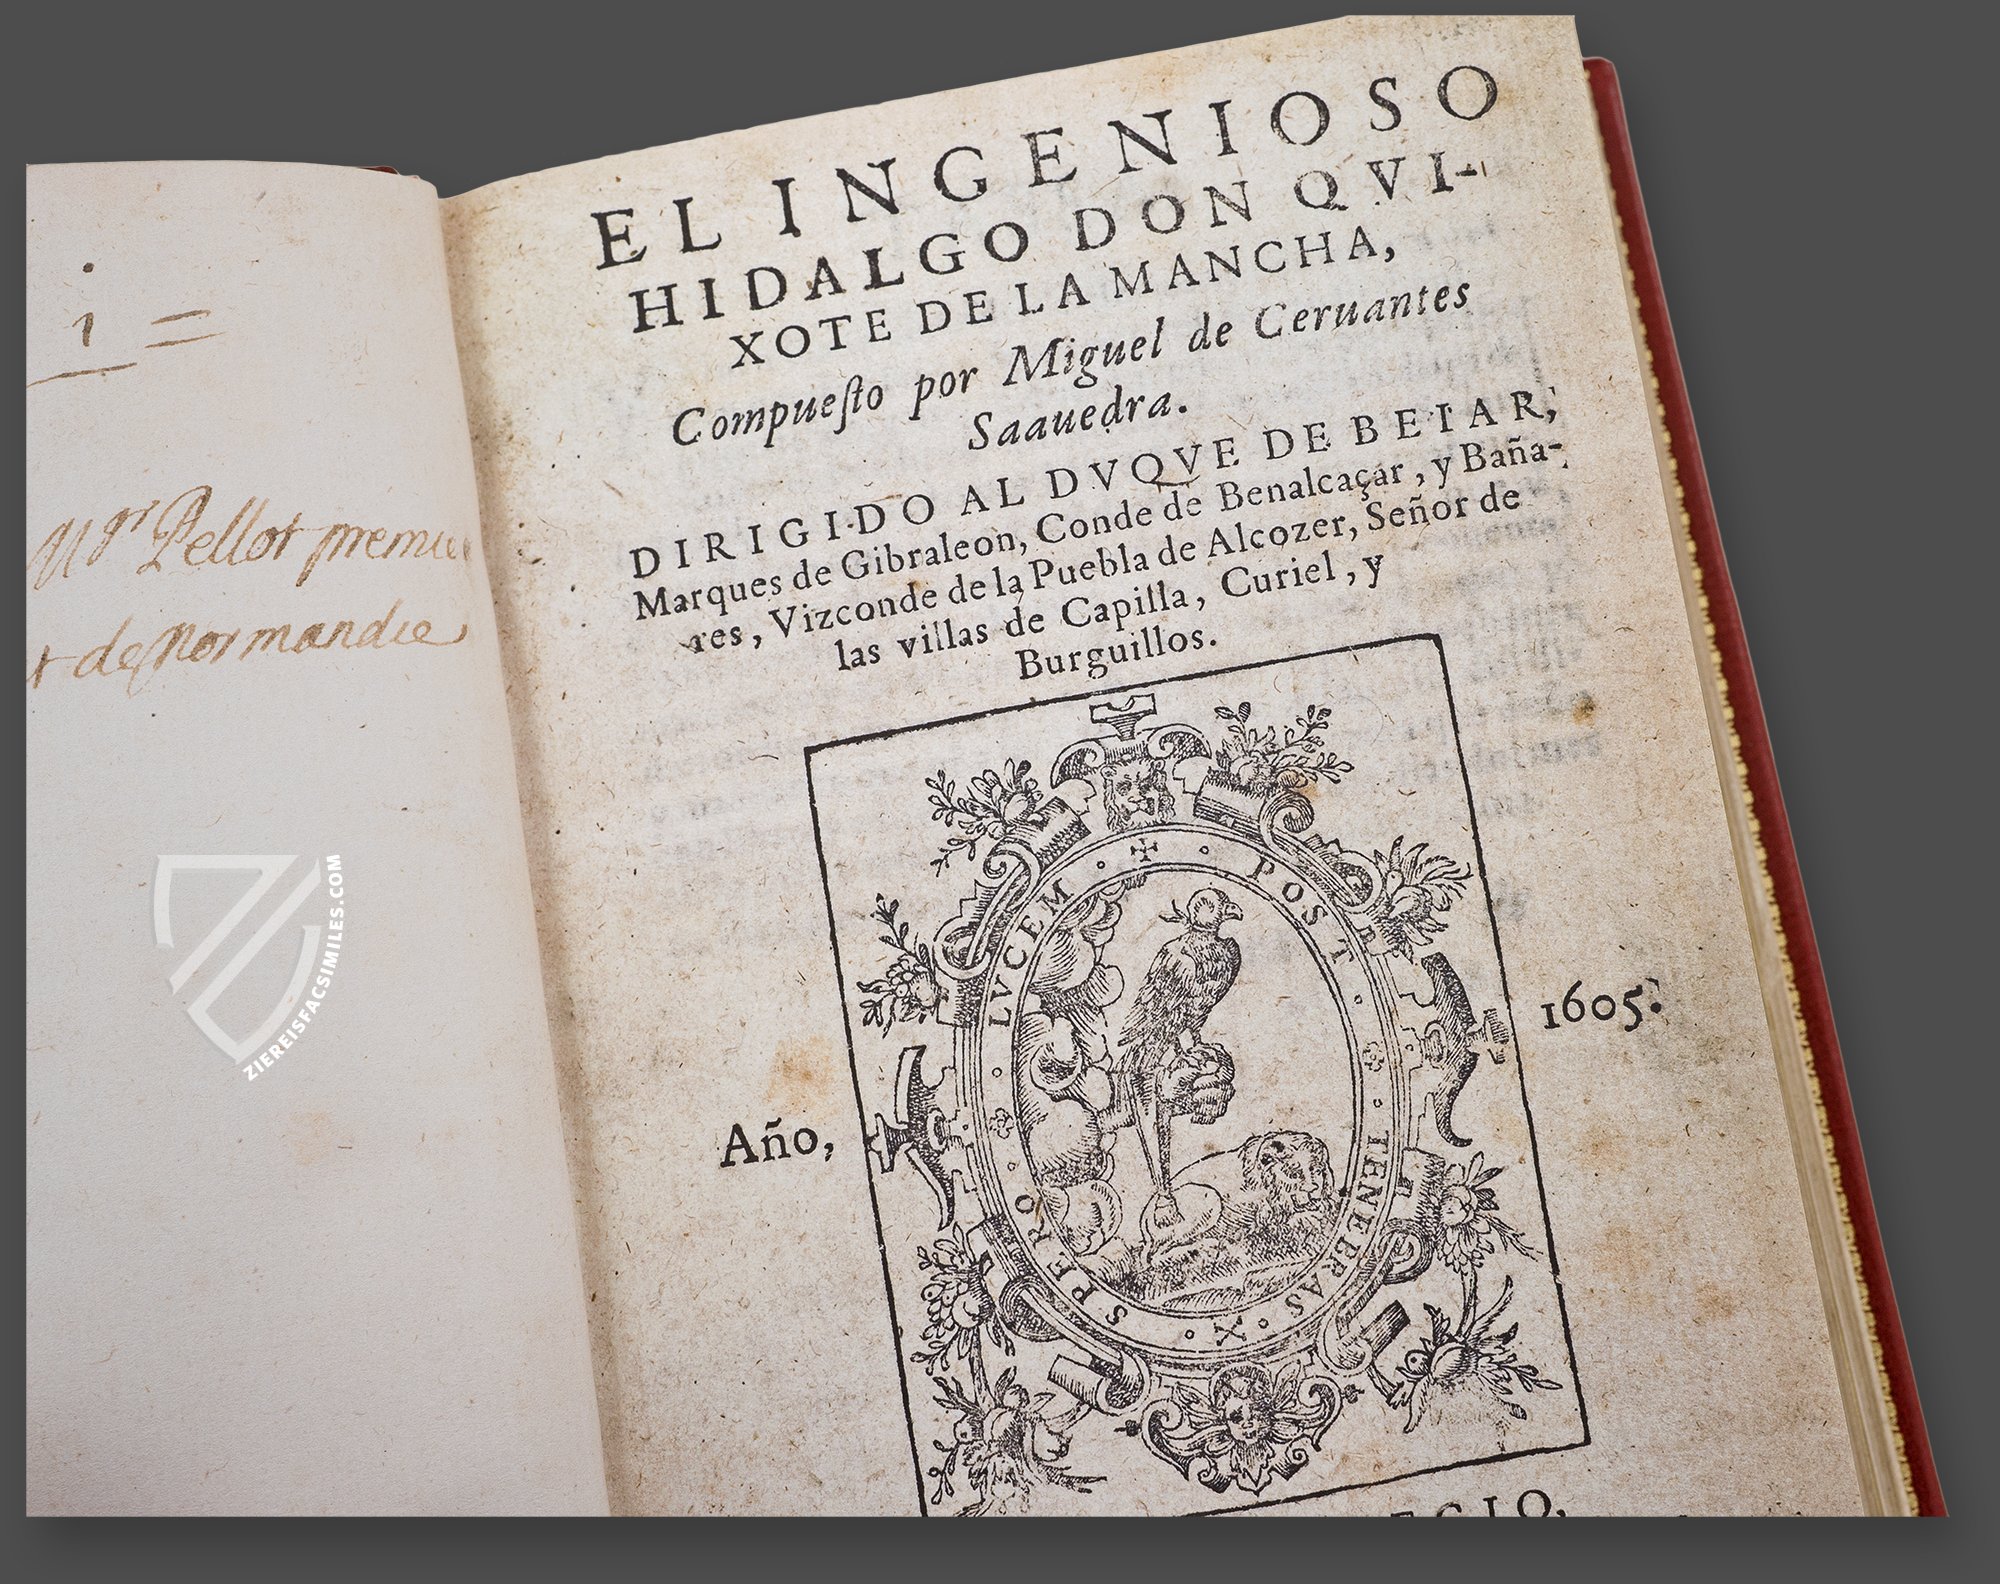 i
1 =
Mgr Pellot premier
t de Normandie
ZIEREISFACSIMILES.COM
EL INGENIOSO
HIDALGO DON QVI-
XOTE DE LA MANCHA,
Compueſto por Miguel de Ceruantes
Saauedra.
DIRIGIDO AL DVQVE DE BEIAR,
Marques de Gibraleon, Conde de Benalcaçar, y Baña-
res, Vizconde de la Puebla de Alcozer, Señor de
las villas de Capilla, Curiel, y
Burguillos.
SPERO LVCEM POST TENEBRAS
Año,
1605.
EGIO,